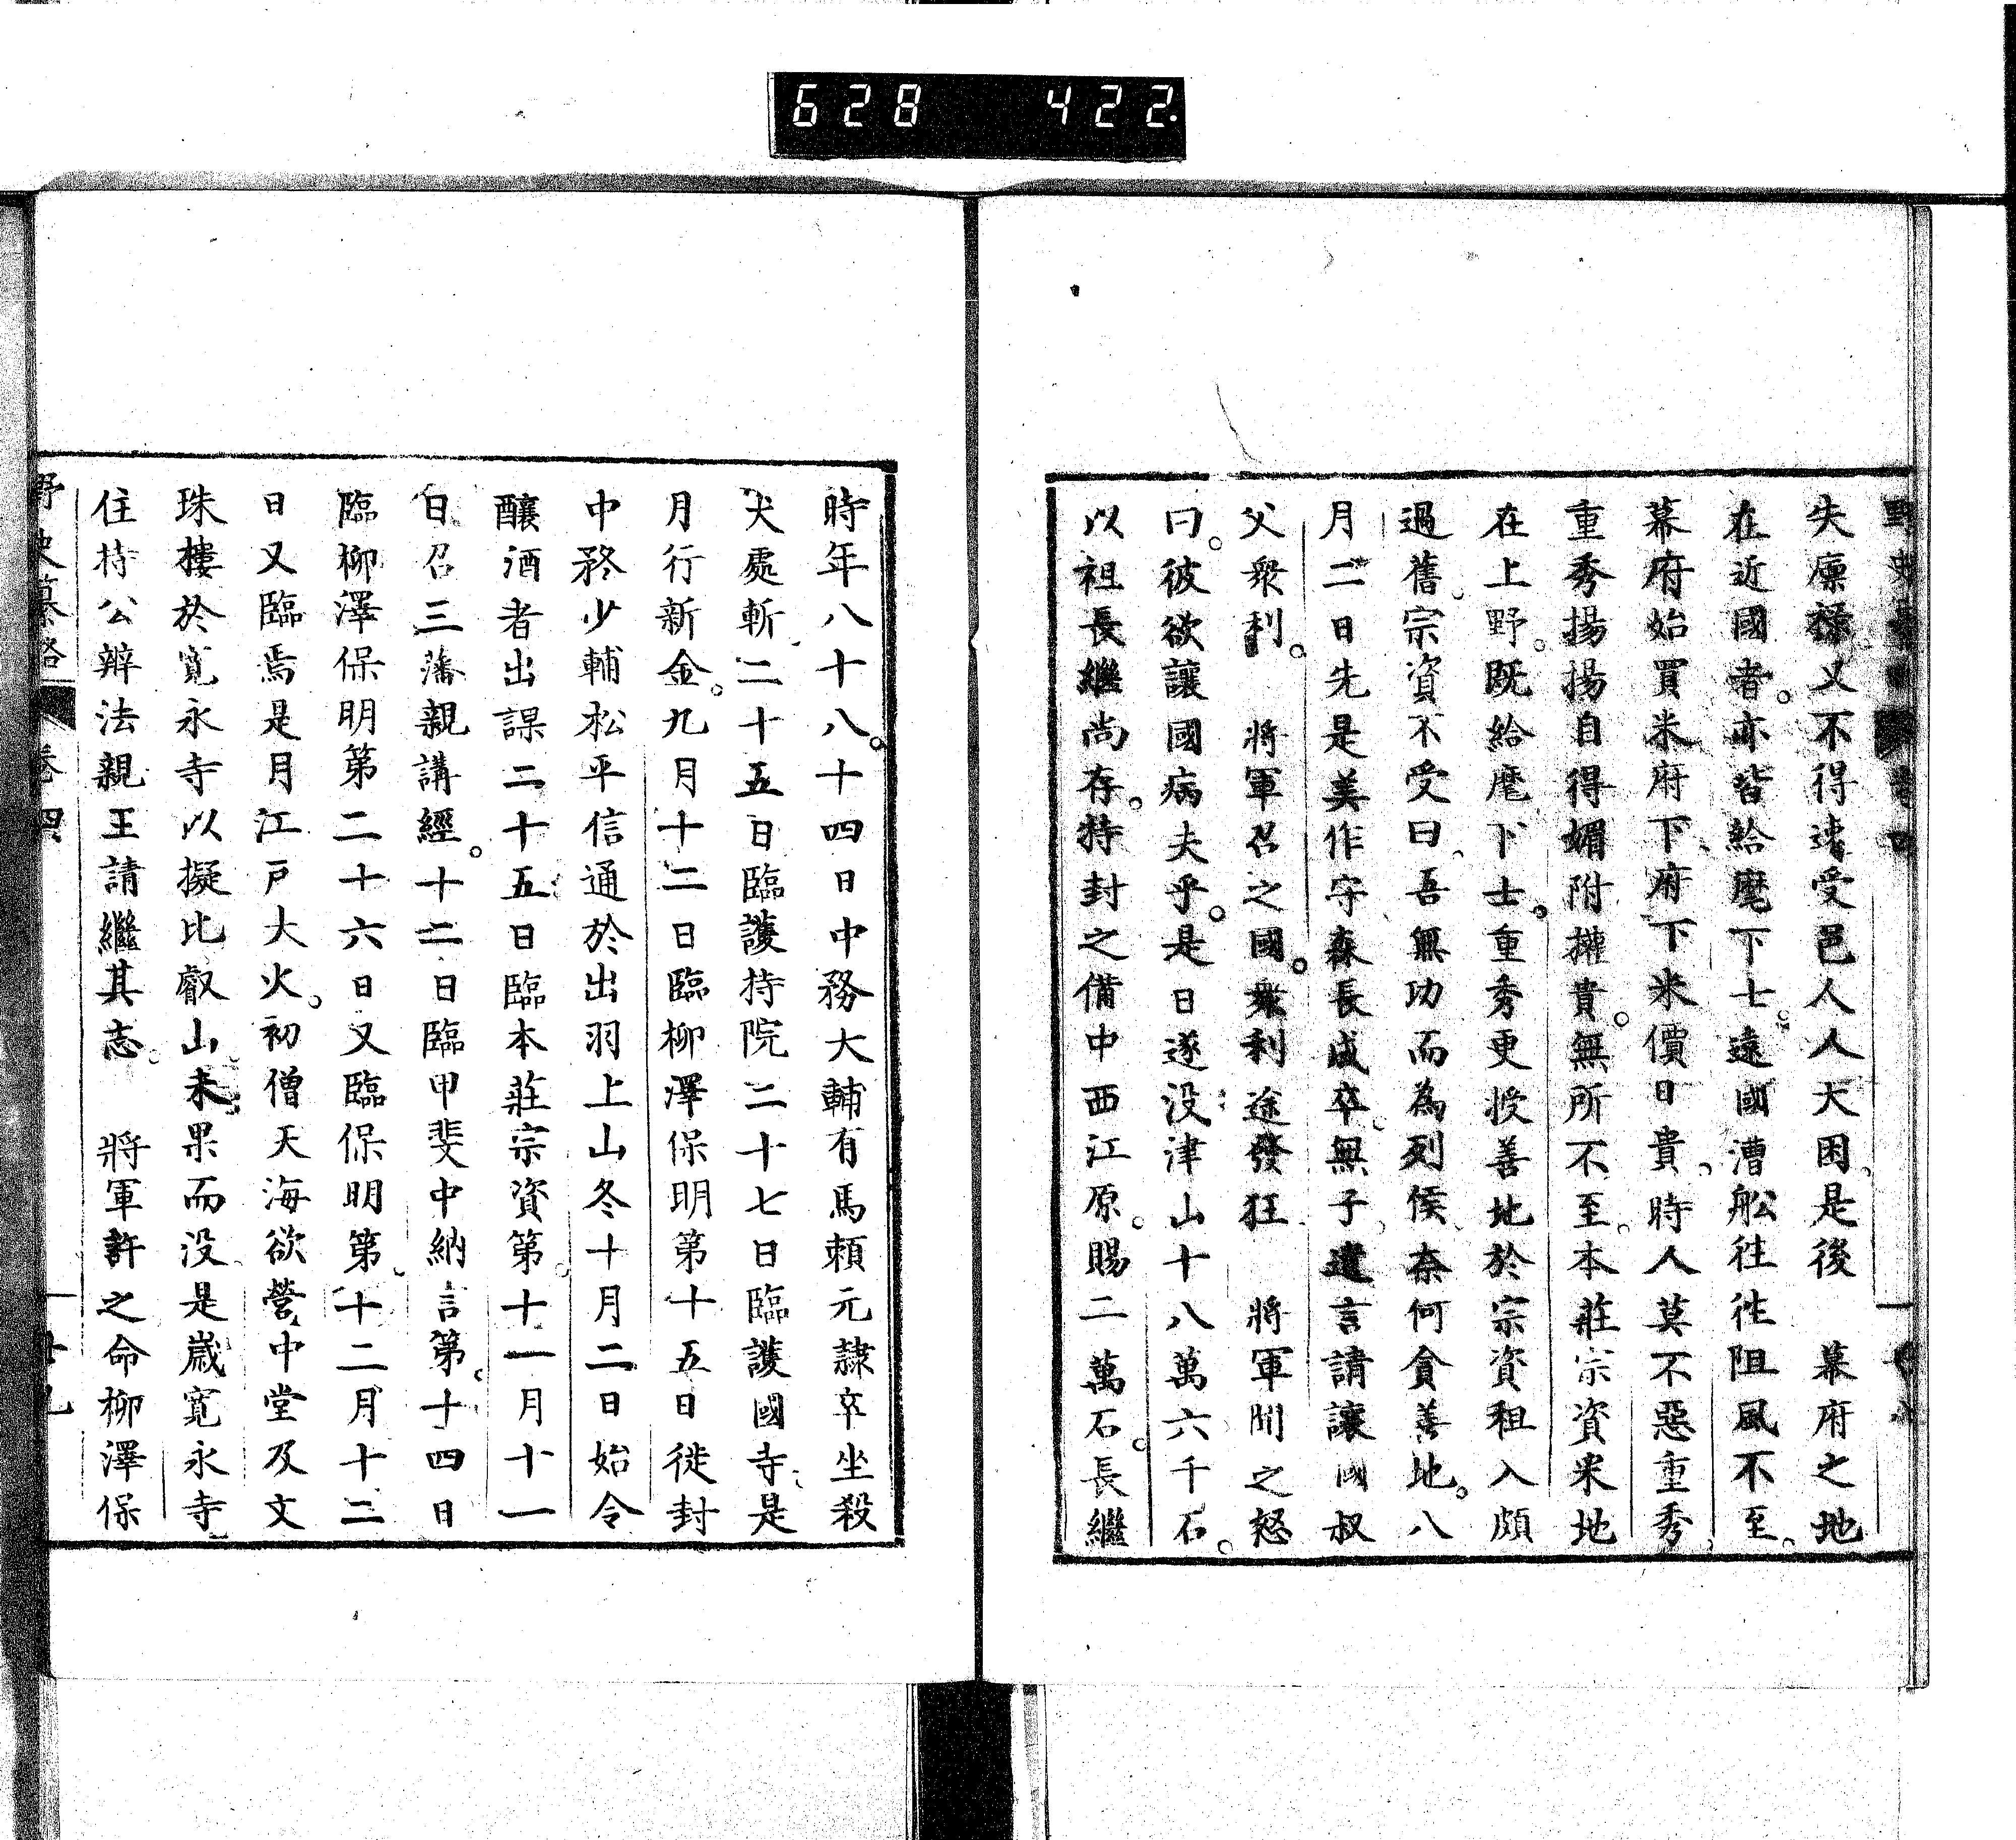 628 422
失廩祿又不得速受邑人人大困是後　幕府之地
在近國者。亦皆給麾下士。遠國漕舩往往阻風不至。
幕府始買米府下府下米價日貴時人莫不惡重秀
重秀揚揚自得媚附權貴。無所不至本莊宗資采地
在上野。既給麾下士。重秀更授善地於宗資租入頗
過舊宗資不受曰吾無功而為列侯奈何貪善地。八
月二日先是美作守森長成卒無子遺言請讓國叔
父衆利。　將軍召之國。衆利途發狂　將軍聞之怒
曰。彼欲讓國病夫乎。是日遂没津山十八萬六千石。
以祖長繼尚存。特封之備中西江原。賜二萬石。長繼
時年八十八。十四日中務大輔有馬頼元隷卒坐殺
犬處斬二十五日臨護持院二十七日臨護國寺是
月行新金。九月十二日臨柳澤保明第十五日徙封
中務少輔松平信通於出羽上山冬十月二日始令
釀酒者出課二十五日臨本莊宗資第十一月十一
日召三藩親講經。十二日臨甲斐中納言第十四日
臨柳澤保明第二十六日又臨保明第十二月十二
日又臨焉是月江戸大火。初僧天海欲營中堂及文
珠樓於寛永寺以擬比叡山未果而没是嵗寛永寺
住持公辨法親王請繼其志。　將軍許之命柳澤保
野史纂略 卷四